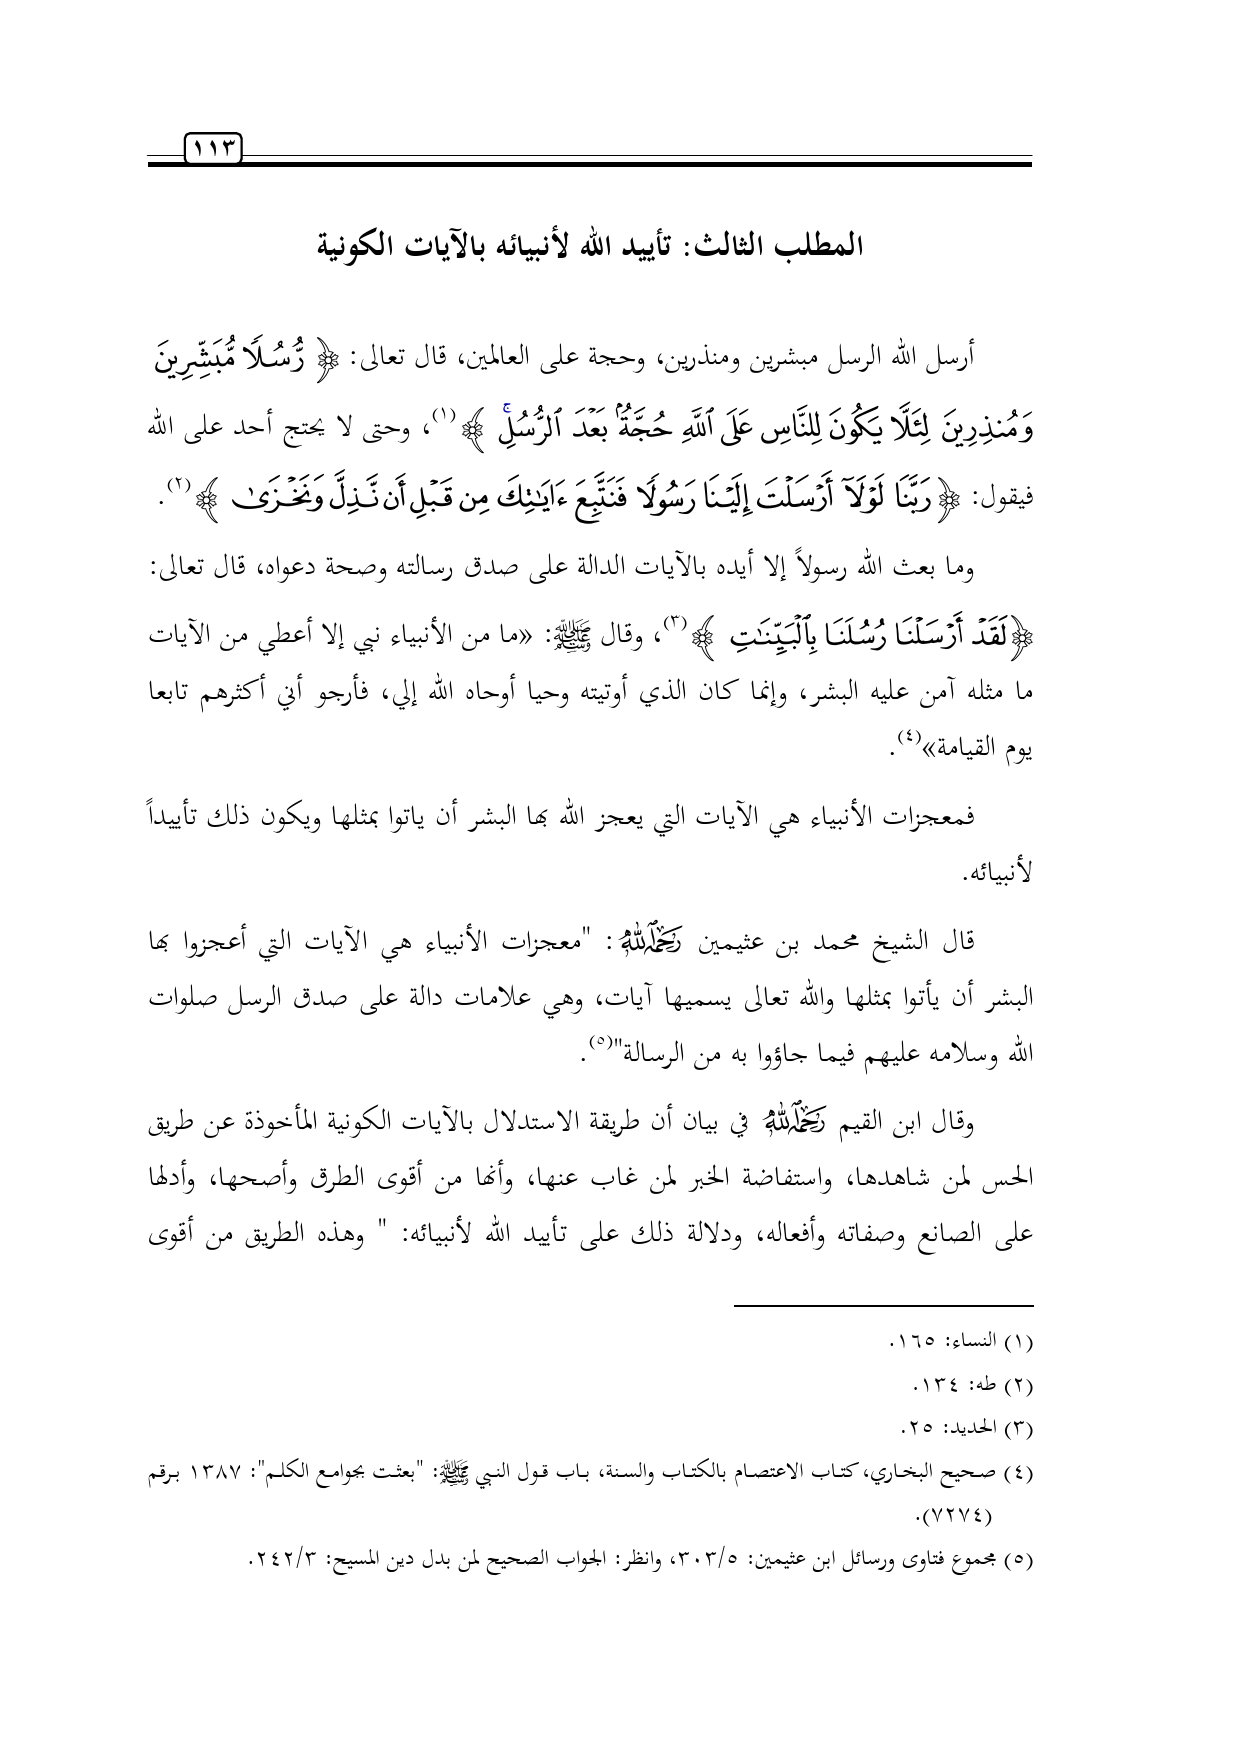 ١١٣
المطلب الثالث: تأييد الله لأنبيائه بالآيات الكونية
أرسل الله الرسل مبشرين ومنذرين، وحجة على العالمين، قال تعالى: ﴿ رُّسُلًا مُّبَشِّرِينَ
وَمُنذِرِينَ لِئَلَّا يَكُونَ لِلنَّاسِ عَلَى ٱللَّهِ حُجَّةُۢ بَعۡدَ ٱلرُّسُلِۚ ﴾(١)، وحتى لا يحتج أحد على الله
فيقول: ﴿ رَبَّنَا لَوۡلَآ أَرۡسَلۡتَ إِلَيۡنَا رَسُولٗا فَنَتَّبِعَ ءَايَٰتِكَ مِن قَبۡلِ أَن نَّذِلَّ وَنَخۡزَىٰ ﴾(٢).
وما بعث الله رسولاً إلا أيده بالآيات الدالة على صدق رسالته وصحة دعواه، قال تعالى:
﴿لَقَدۡ أَرۡسَلۡنَا رُسُلَنَا بِٱلۡبَيِّنَٰتِ ﴾(٣)، وقال ﷺ: «ما من الأنبياء نبي إلا أعطي من الآيات
ما مثله آمن عليه البشر، وإنما كان الذي أوتيته وحيا أوحاه الله إلي، فأرجو أني أكثرهم تابعا
يوم القيامة»(٤).
فمعجزات الأنبياء هي الآيات التي يعجز الله بها البشر أن ياتوا بمثلها ويكون ذلك تأييداً
لأنبيائه.
قال الشيخ محمد بن عثيمين رحمه الله : "معجزات الأنبياء هي الآيات التي أعجزوا بها
البشر أن يأتوا بمثلها والله تعالى يسميها آيات، وهي علامات دالة على صدق الرسل صلوات
الله وسلامه عليهم فيما جاؤوا به من الرسالة"(٥).
وقال ابن القيم رحمه الله في بيان أن طريقة الاستدلال بالآيات الكونية المأخوذة عن طريق
الحس لمن شاهدها، واستفاضة الخبر لمن غاب عنها، وأنها من أقوى الطرق وأصحها، وأدلها
على الصانع وصفاته وأفعاله، ودلالة ذلك على تأييد الله لأنبيائه: " وهذه الطريق من أقوى
(١) النساء: ١٦٥.
(٢) طه: ١٣٤.
(٣) الحديد: ٢٥.
(٤) صحيح البخاري، كتاب الاعتصام بالكتاب والسنة، باب قول النبي ﷺ: "بعثت بجوامع الكلم": ١٣٨٧ برقم
(٧٢٧٤).
(٥) مجموع فتاوى ورسائل ابن عثيمين: ٣٠٣/٥، وانظر: الجواب الصحيح لمن بدل دين المسيح: ٢٤٢/٣.